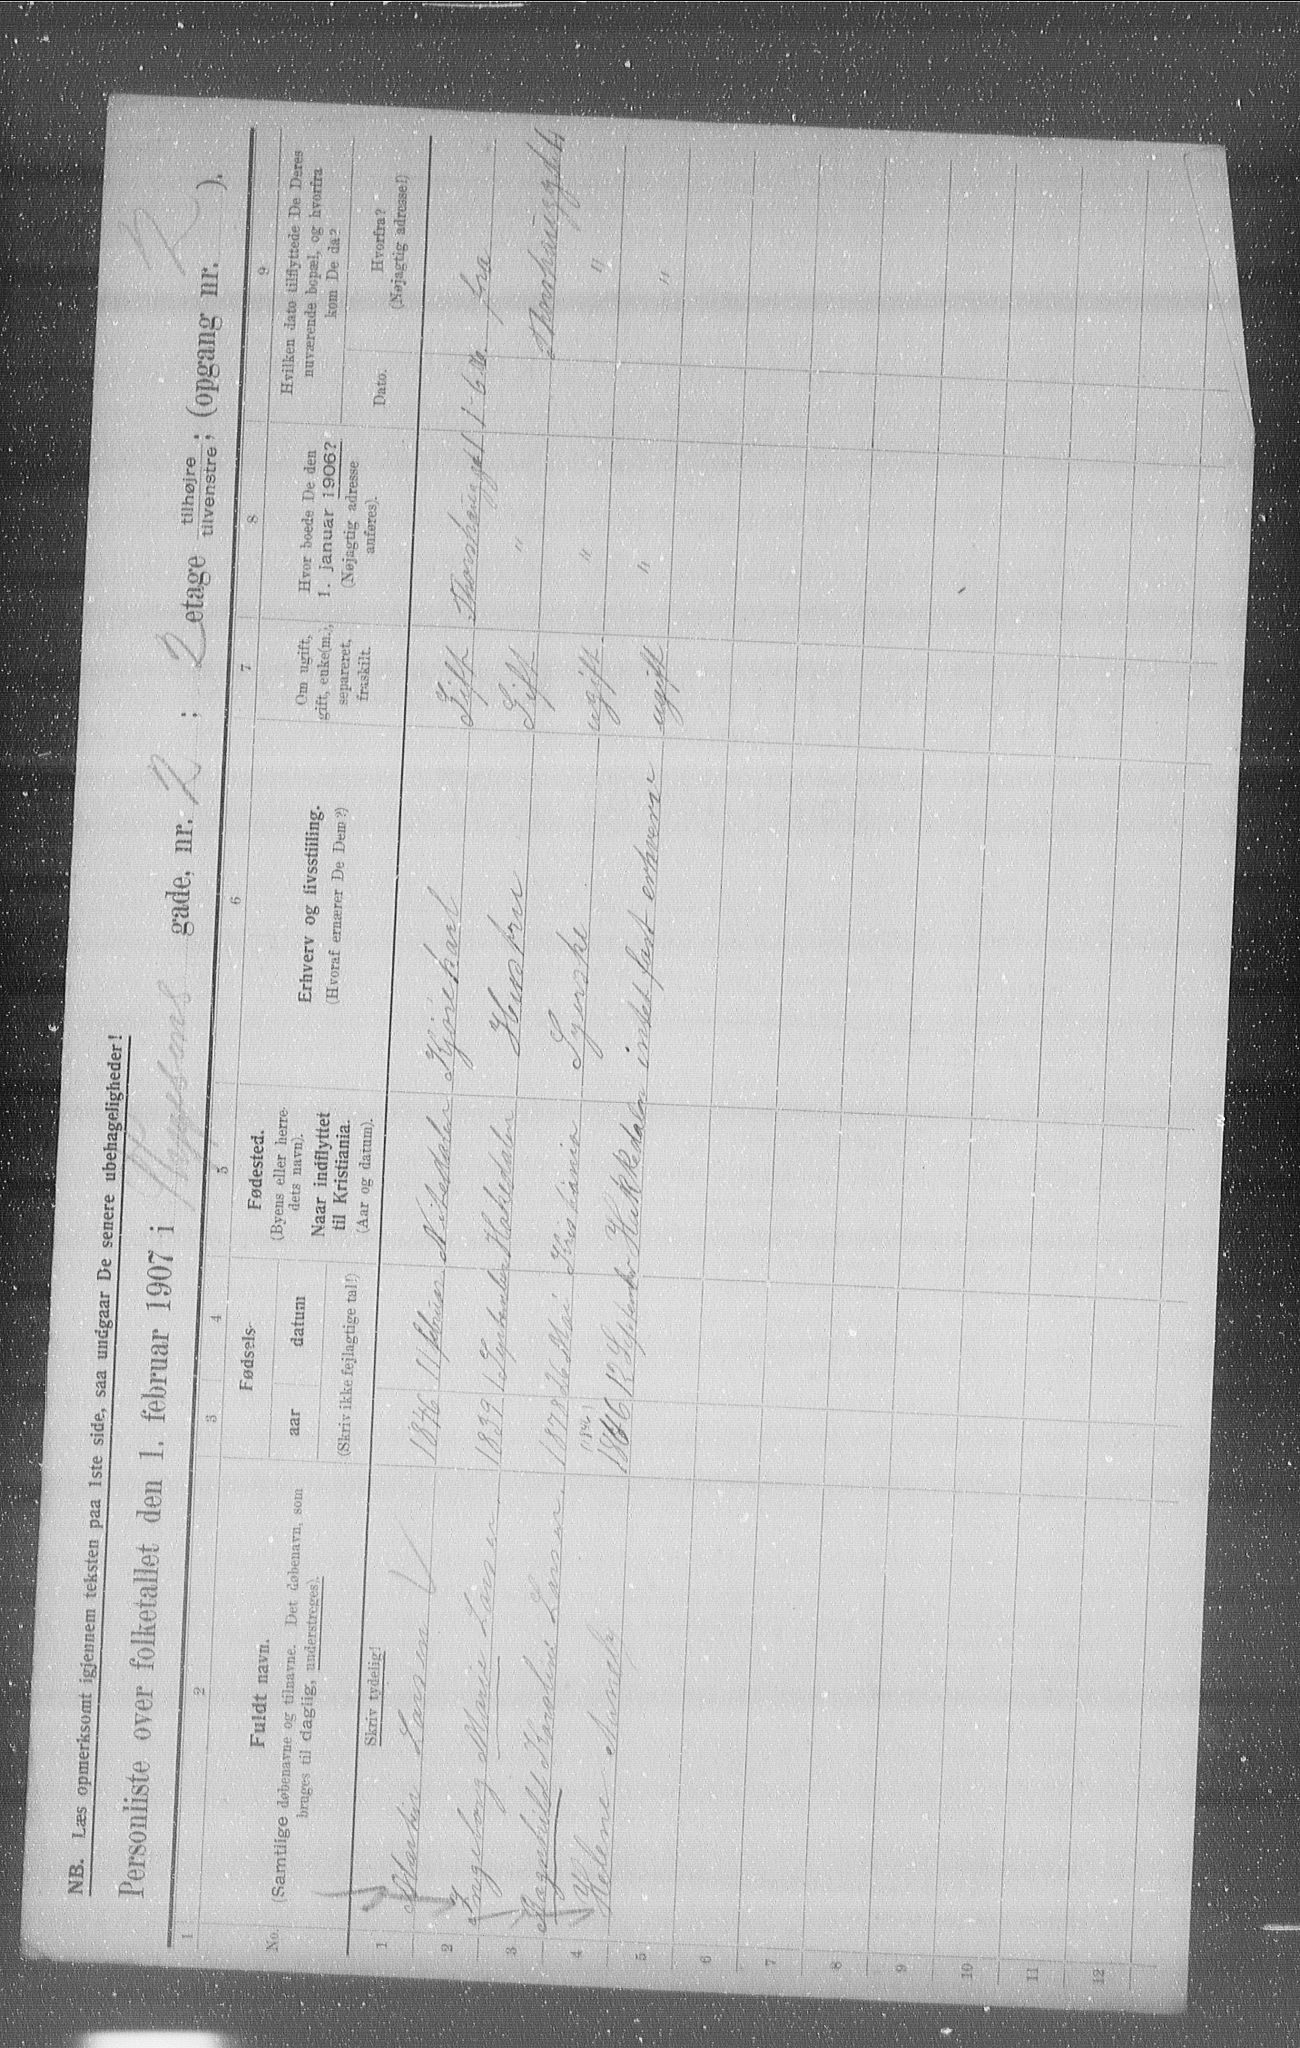 NB. Læs opmerksomt igjennem teksten paa 1ste side, saa undgaar De senere ubehageligheder!
Personliste over folketallet den 1. februar 1907 i gade, nr. 2 ; 2 etage tilhøjre tilvenstre ; (opgang nr. ).
1 2 3 4 5 6 7 8 9
No.
Fuldt navn.
(Samtlige døbenavne og tilnavne. Det døbenavn, som
bruges til daglig, understreges).
Skriv tydelig!
Fødsels-
aar datum
(Skriv ikke fejlagtige tal!)
Fødested.
(Byens eller herre-
dets navn).
Naar indflyttet
til Kristiania.
(Aar og datum).
Erhverv og livsstilling.
(Hvoraf ernærer De Dem?)
Om ugift,
gift, enke(m.,
separeret,
fraskilt.
Hvor boede De den
1. januar 1906?
(Nøjagtig adresse
anføres).
Hvilken dato tilflyttede De Deres
nuværende bopæl, og hvorfra
kom De da?
Dato.
Hvorfra?
(Nøjagtig adresse!)
1 Martin Larsen 1846 11 Nitedalen Kjørekarl Gift 1-6- fra
2 Ingeborg Marie Larsen 1839 1 September Hakedalen Hustru Gift "
3 Ragnhild Karoline Larsen. 1878 26 Mai Kristiania Syerske ugift " "
4 Helene 1846 12 Hakkedalen intet fast erhverv ugift " "
5
6
7
8
9
10
11
12